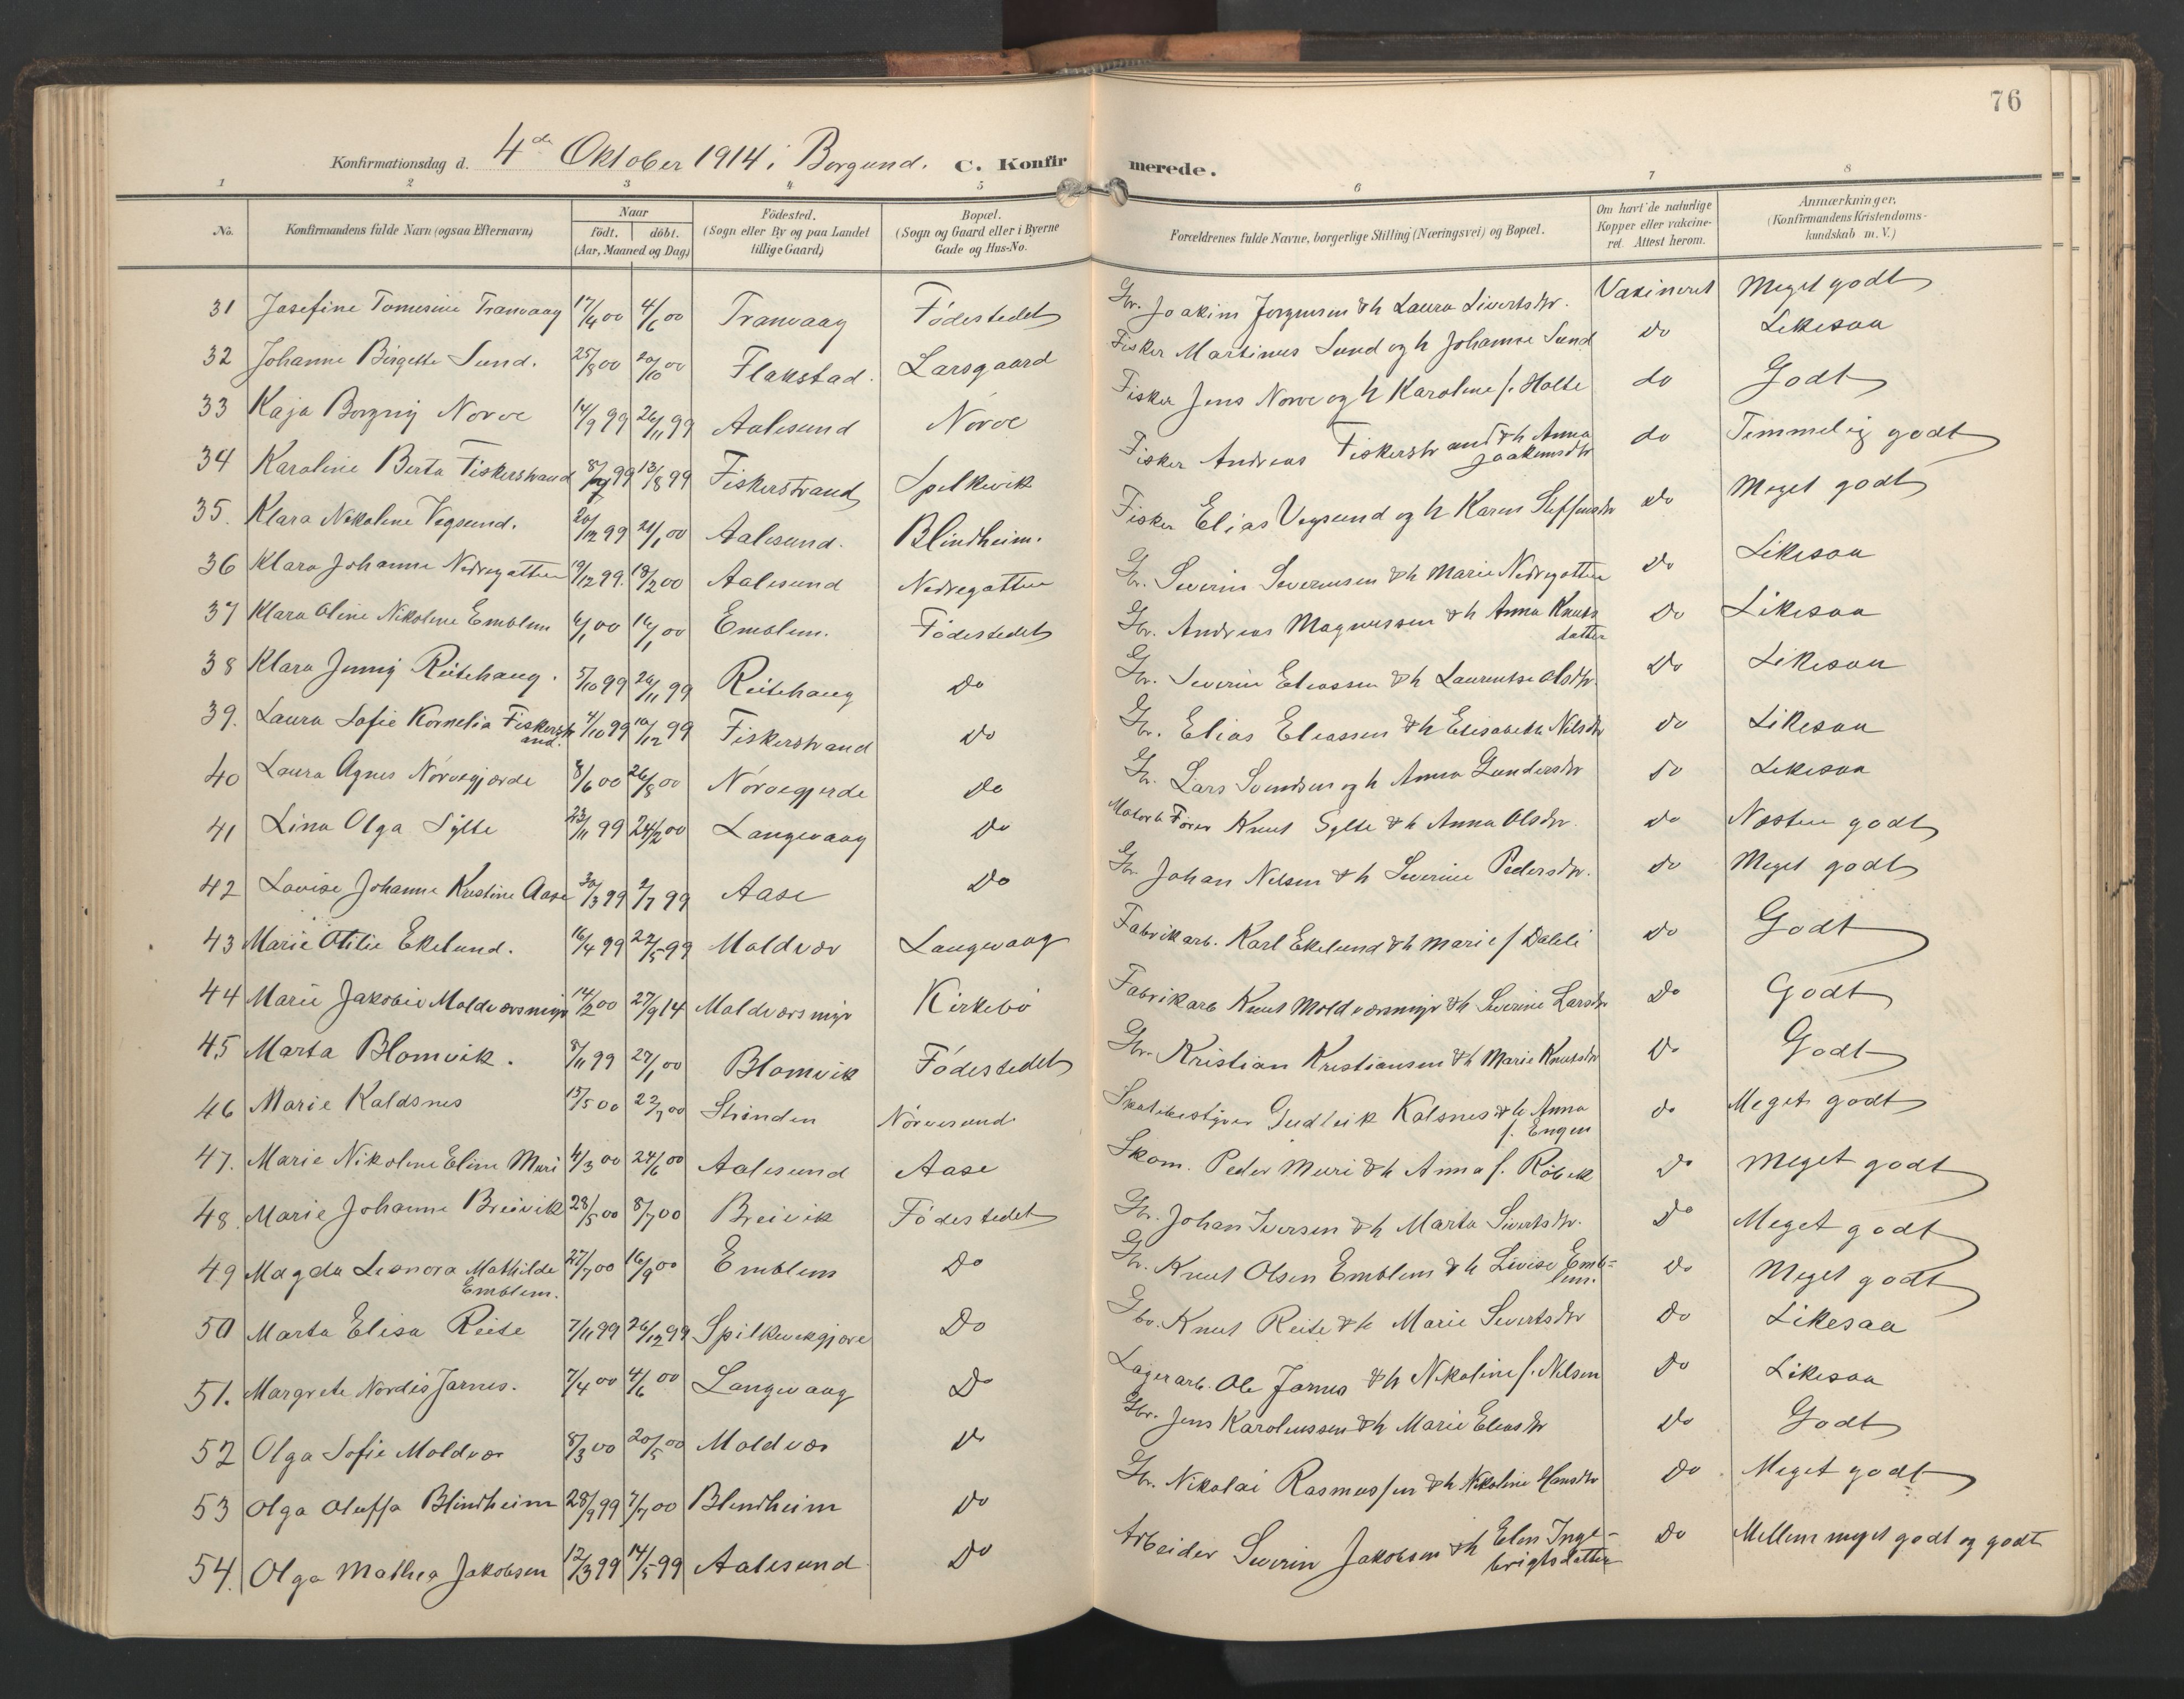 76
Konfirmationsdag d. 4de Oktober 1914 i Borgund. C. Konfirmerede.
1 2 3 4 5 6 7 8
No. Konfirmandens fulde Navn (ogsaa Efternavn) Naar födt. döbt. (Aar, Maaned og Dag) Födested. (Sogn eller By og paa Landet tillige Gaard) Bopæl. (Sogn og Gaard eller i Byerne Gade og Hus-No. Forældrenes fulde Navne, borgerlige Stilling (Næringsvei) og Bopæl. Om havt de naturlige Kopper eller vakcineret. Attest herom. Anmærkninger. (Konfirmandens Kristendomskundskab m. V.)
31 Josefine Tomesine Tranvaag 17/4 00 4/6 00 Tranvaag Födestedet Gbr. Joakim Jørgensen & h Laura Sivertsdtr. Vaxineret Meget godt
32 Johanne Birgitte Sund. 25/8 00 20/10 00 Flakstad. Larsgaard Fisker Martinus Sund og h Johanne Sund do Likesaa
33 Kaja Borgny Norve 14/9 99 26/11 99 Aalesund Nörve Fisker Jens Norve og h Karoline f. Holte do Godt
34 Karoline Berta Fiskerstrand 8/7 99 13/8 99 Fiskerstrand Spelkevik Fisker Andreas Fiskerstrand & h Anna Joakimsdtr do Temmelig godt
35. Klara Nikoline Vegsund. 20/12 99 21/1 00 Aalesund. Blindheim. Fisker Elias Vegsund og h Karen Steffensdtr do Meget godt
36 Klara Johanne Nedregotten 19/12 99. 18/2 00 Aalesund Nedregotten Gbr. Severin Severinsen & h Marie Nedregotten do Likesaa
37 Klara Oline Nikoline Emblem 6/1 00 14/1 00 Emblem. Födestedet Gbr. Andreas Magnussen & h Anna Knutsdatter do Likesaa
38 Klara Jenny Reitehaug. 5/10 99 26/11 99 Reitehaug do Gbr. Severin Eliassen & h Laurentse Olsdtr. do Likesaa
39. Laura Sofie Kornelia Fiskerstrand. 4/10 99 10/12 99 Fiskerstrand do Gbr. Elias Eliassen & h Elisabeth Nilsdtr do Likesaa
40 Laura Agnes Nörvegjærde 8/6 00 26/8 00 Nörvegjerde do Gbr. Lars Svendsen og h Anna Gundersdtr do Likesaa
41 Lina Olga Sylte 23/11 99 24/2 00 Langevaag do Motorb Förer Knut Sylte & h Anna Olsdtr. do Næsten godt
42 Lovise Johanne Kristine Aase 30/3 99 2/7 99 Aase do Gbr Johan Nilsen & h Severine Pedersdtr. do Meget godt
43 Marie Otilie Ekelund. 16/4 99 22/5 99 Moldvær Langevaag Fabrikarb. Karl Ekelund & h Marie f Dahli do Godt
44 Marie Jakobie Moldværsmyr 14/2 00 27/9 14 Moldværsmyr Kirkebö Fabrikarb Knut Moldværsmyr & h Severine Larsdtr do Godt
45 Marta Blomvik. 8/11 99 27/1 00 Blomvik Födestedet Gbr. Kristian Kristiansen & h Marie Knutsdtr do Godt
46 Marie Kaldsnes 15/5 00 22/7 00 Strinden Nörvesund Gudleik Kalsnes & h Anna f. Engen do Meget godt
47. Marie Nikoline Eline Muri 4/3 00 24/6 00 Aalesund Aase Skom. Peder Muri & h Anna f. Röbek do Meget godt
48. Marie Johanne Breivik 28/5 00 8/7 00 Breivik Födestedet Gbr. Johan Iversen & h Marta Sivertsdtr. do Meget godt
49 Magda Leonora Mathilde Emblem. 27/7 00 16/9 00 Emblem do Gbr. Knut Olsen Emblem & h Lovise Emblem. do Meget godt
50 Marta Elisa Reite 7/11 99 26/12 99 Spilkevikgjære do Gbr. Knut Reite & h Marie Sivertsdtr do Likesaa
51. Margrete Nordis Jarnes. 7/4 00 4/6 00 Langevaag do Lagerarb. Ole Jarnes & h Nikoline f. Nilsen do Likesaa
52 Olga Sofie Moldvær 8/3 00 20/5 00 Moldvær do Gbr. Jens Karolussen & h Marie Eliasdtr do Godt
53 Olga Oluffa Blindheim 28/9 99 7/7 00 Blindheim do Gbr. Nikolai Rasmussen & h Nikoline Hansdtr do Meget godt
54. Olga Mathea Jakobsen 12/3 99 14/5 99 Aalesund do Arbeider Severin Jakobsen & h Elen Ingebrigtsdatter do Mellem meget godt og godt